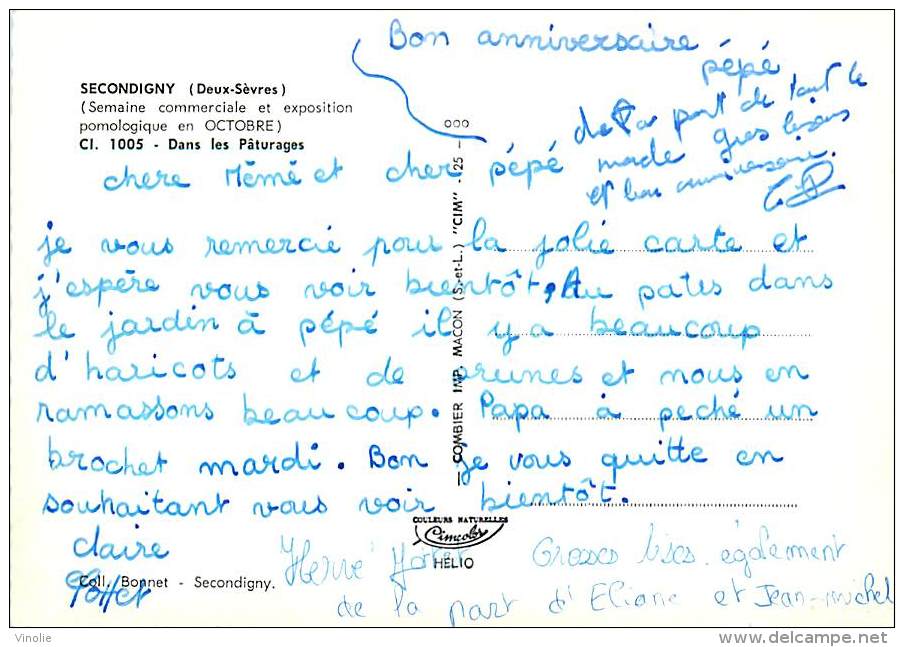 Bon anniversaire
pépé
de la part de tout le
monde gros bisous
et bon anniversaire.
SECONDIGNY (Deux-Sèvres)
(Semaine commerciale et exposition
pomologique en OCTOBRE)
Cl. 1005 - Dans les Pâturages
chere Mémé et cher pépé
je vous remercie pour la jolie carte et
j'espère vous voir bientôt, Au patis dans
le jardin à pépé il y a beaucoup
d'haricots et de prunes et nous en
ramassons beaucoup. Papa à peché un
brochet mardi. Bon je vous quitte en
souhaitant vous voir bientôt.
claire
COMBIER IMP. MACON (S.-et-L.) "CIM"
COULEURS NATURELLES
Cimcolor
HÉLIO
Hervé
Grosses bises également
de la part d'Eliane et Jean-michel
Coll. Bonnet - Secondigny.
Vinolie
http://www.delcampe.net